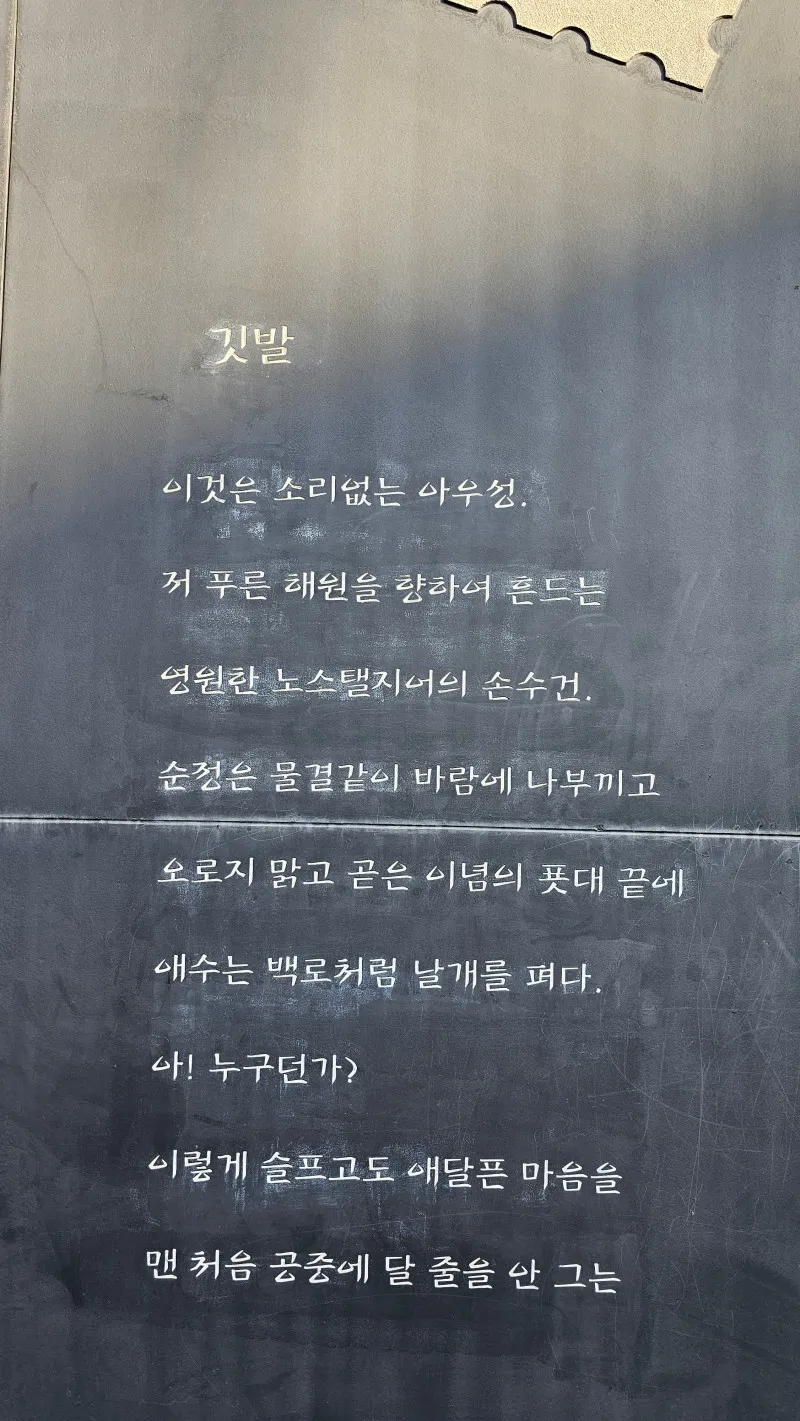 깃발
이것은 소리없는 아우성.
저 푸른 해원을 향하여 흔드는
영원한 노스탤지어의 손수건.
순정은 물결같이 바람에 나부끼고
오로지 맑고 곧은 이념의 푯대 끝에
애수는 백로처럼 날개를 펴다.
아! 누구던가?
이렇게 슬프고도 애달픈 마음을
맨 처음 공중에 달 줄을 안 그는